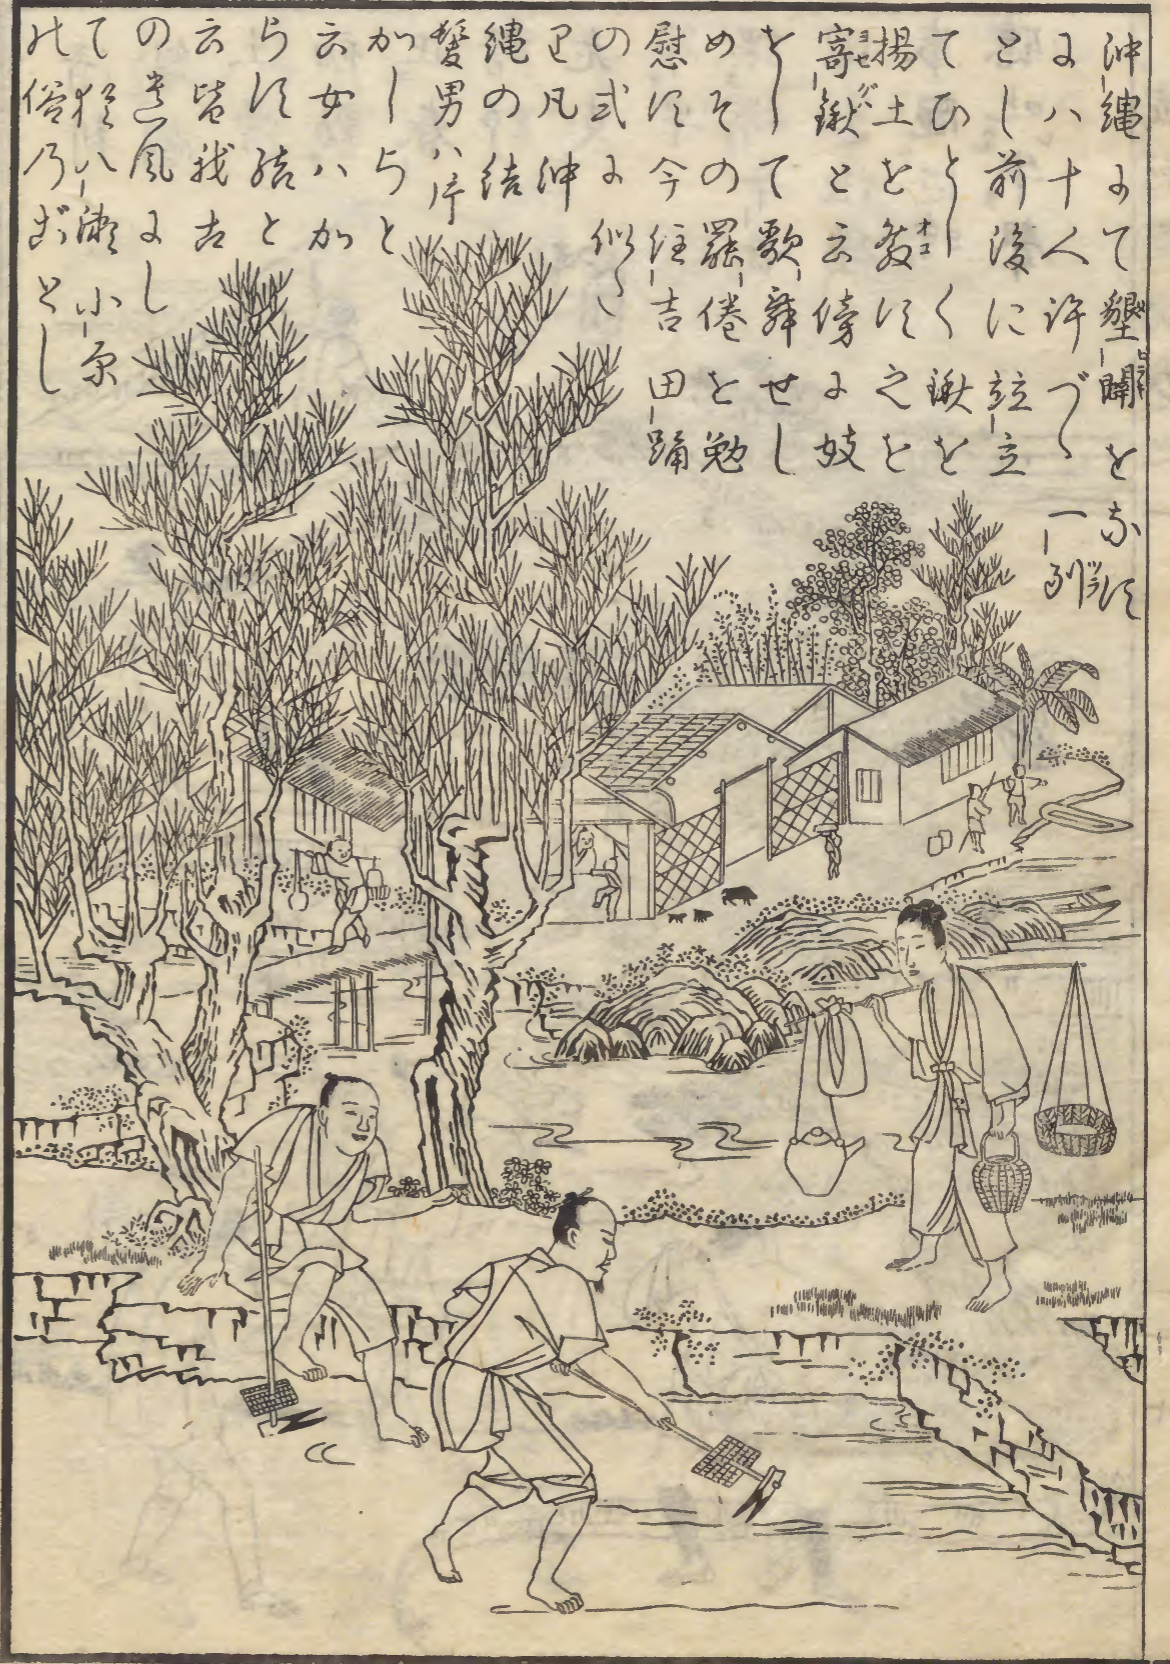 沖縄にて墾開をなす
には十人許づゝ一列
とし前後に並立
てひとしく鍬を
揚土を発す之を
寄鍬と云傍に妓
をして歌舞せし
めその罷倦を勉
慰す今住吉田踊
の式に似たり
凡沖
縄の結
髪男ハ片
かしらと
云女ハか
らす結と
云皆我古
の遺風にし
て猶八瀬小原
の俗乃ごとし